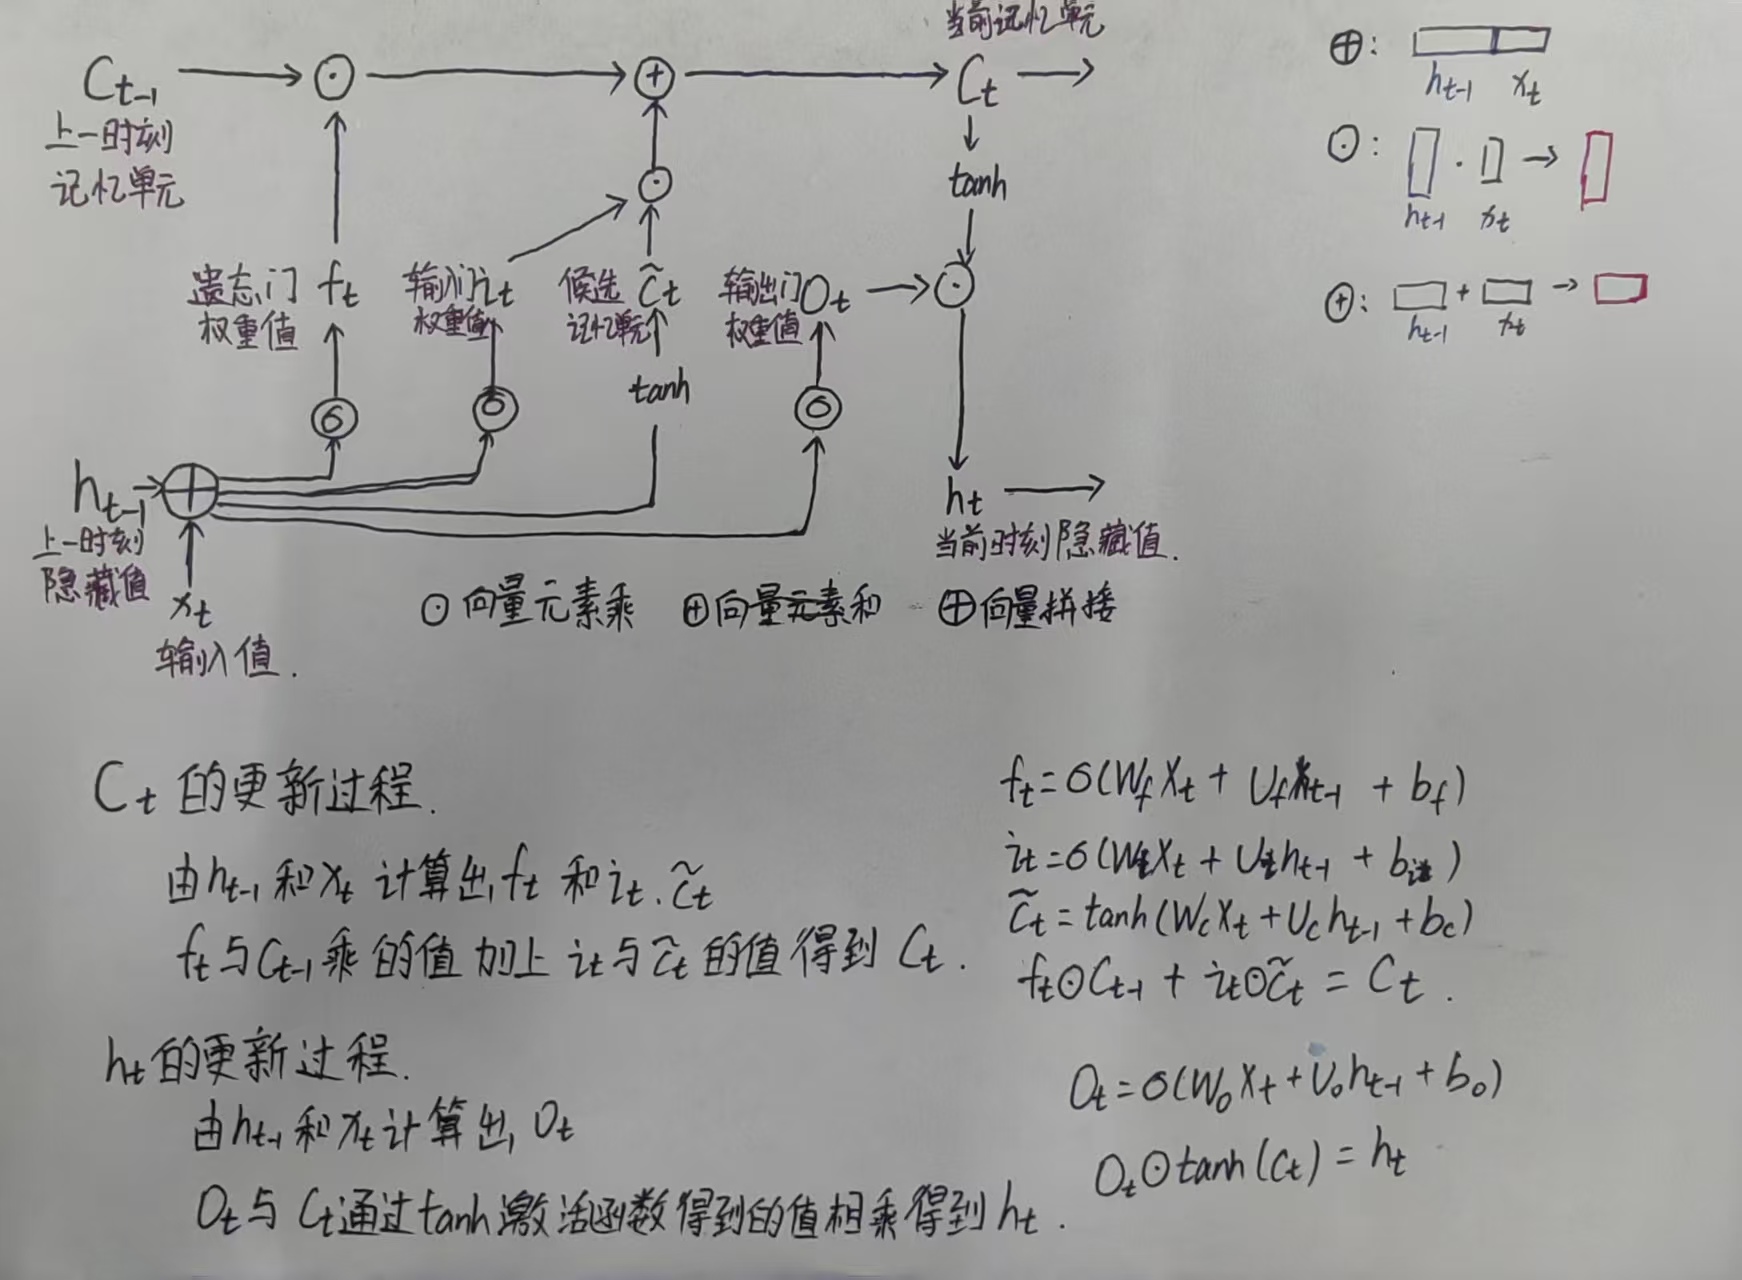 当前记忆单元
C_{t-1} → ⊙ → ⊕ → C_t →
上一时刻
记忆单元
tanh
遗忘门 f_t 输入门 i_t 候选 c̃_t 输出门 O_t → ⊙
权重值 权重值 记忆单元 权重值
tanh
σ σ σ
h_{t-1} → ⊕ h_t →
上一时刻 当前时刻隐藏值.
隐藏值
x_t
输入值.
⊙ 向量元素乘 ⊕ 向量元素和 ⊕ 向量拼接
⊕:
h_{t-1} x_t
⊙: · →
h_{t-1} x_t
⊕: + →
h_{t-1} x_t
C_t 的更新过程.
由 h_{t-1} 和 x_t 计算出 f_t 和 i_t. c̃_t
f_t 与 C_{t-1} 乘的值加上 i_t 与 c̃_t 的值得到 C_t.
h_t 的更新过程.
由 h_{t-1} 和 x_t 计算出 O_t
O_t 与 C_t 通过 tanh 激活函数得到的值相乘得到 h_t.
f_t = σ(W_f x_t + U_f h_{t-1} + b_f)
i_t = σ(W_i x_t + U_i h_{t-1} + b_i)
c̃_t = tanh(W_c x_t + U_c h_{t-1} + b_c)
f_t ⊙ C_{t-1} + i_t ⊙ c̃_t = C_t.
O_t = σ(W_o x_t + U_o h_{t-1} + b_o)
O_t ⊙ tanh(C_t) = h_t